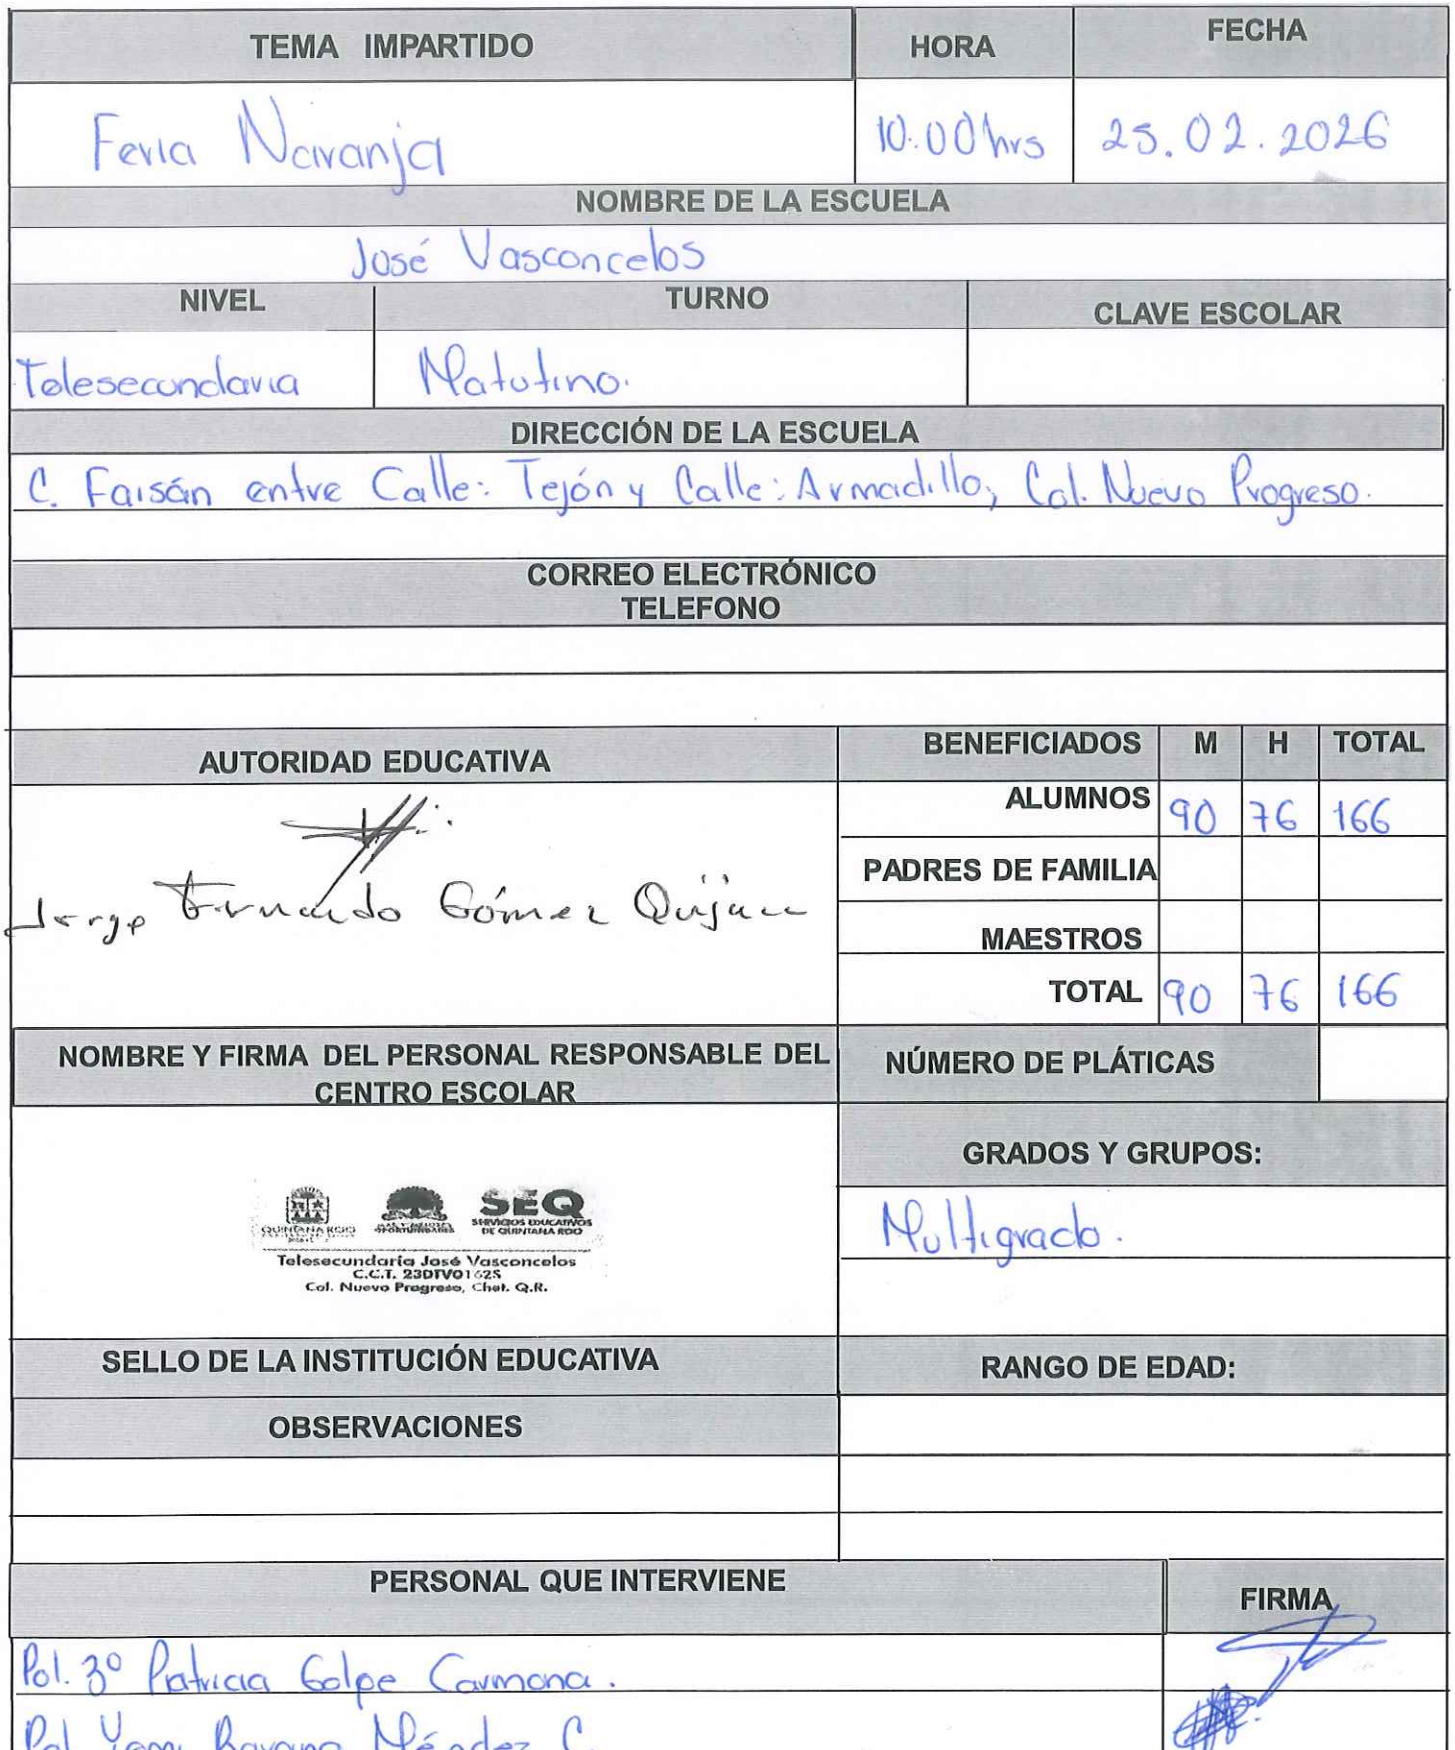 TEMA IMPARTIDO HORA FECHA
Feria Naranja 10:00 hrs 25.02.2026
NOMBRE DE LA ESCUELA
José Vasconcelos
NIVEL TURNO CLAVE ESCOLAR
Telesecundaria Matutino.
DIRECCIÓN DE LA ESCUELA
C. Faisán entre Calle: Tejón y Calle: Armadillo, Col. Nuevo Progreso.
CORREO ELECTRÓNICO
TELEFONO
AUTORIDAD EDUCATIVA BENEFICIADOS M H TOTAL
ALUMNOS 90 76 166
PADRES DE FAMILIA
Jorge Fernando Gómez Quijano
MAESTROS
TOTAL 90 76 166
NOMBRE Y FIRMA DEL PERSONAL RESPONSABLE DEL CENTRO ESCOLAR
NÚMERO DE PLÁTICAS
GRADOS Y GRUPOS:
Multigrado.
QUINTANA ROO
OPORTUNIDADES
SEQ
SERVICIOS EDUCATIVOS
DE QUINTANA ROO
Telesecundaria José Vasconcelos
C.C.T. 23DTV0162S
Col. Nuevo Progreso, Chet. Q.R.
SELLO DE LA INSTITUCIÓN EDUCATIVA RANGO DE EDAD:
OBSERVACIONES
PERSONAL QUE INTERVIENE FIRMA
Pol. 3º Patricia Golpe Carmona.
Pol. Méndez C.